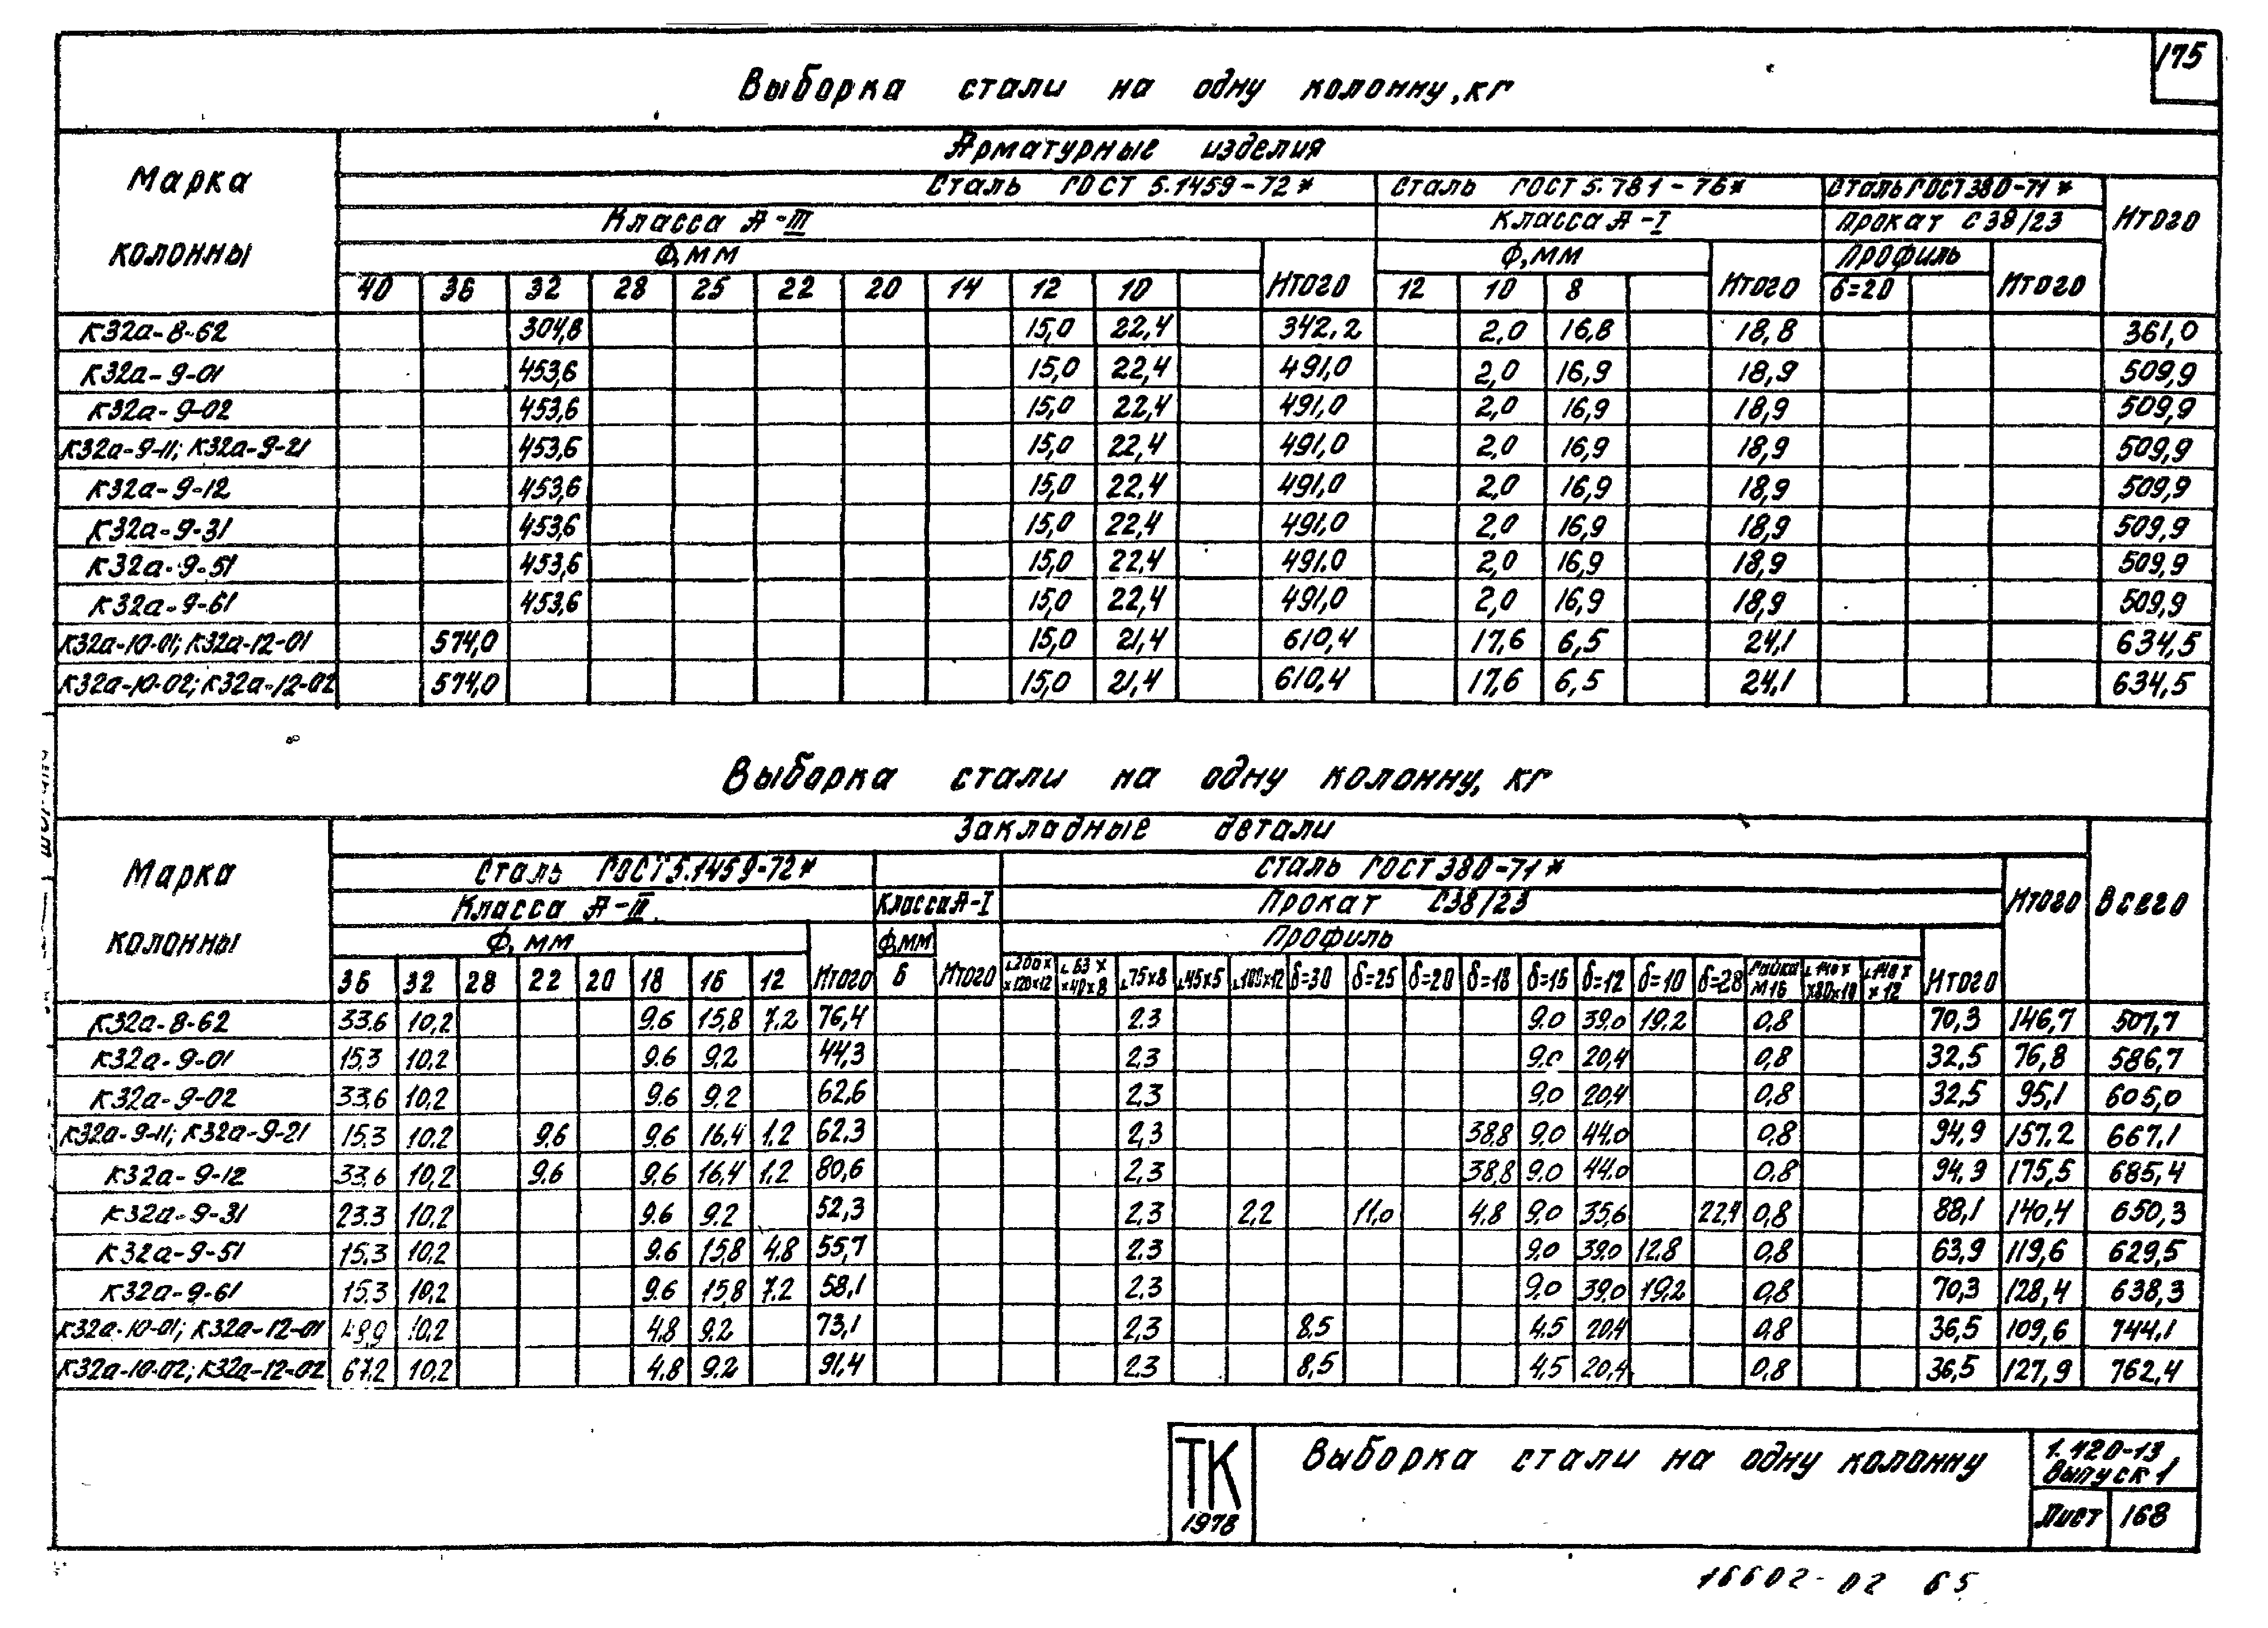 175
Выборка стали на одну колонну, кг
Марка колонны
Арматурные изделия
Сталь ГОСТ 5.1459-72* Сталь ГОСТ 5.781-76* Сталь ГОСТ 380-71* Итого
Класса А-III Класса А-I Прокат С38/23
Ф, мм Итого Ф, мм Итого Профиль Итого
40 36 32 28 25 22 20 14 12 10 12 10 8 δ=20
К32а-8-62 304,8 15,0 22,4 342,2 2,0 16,8 18,8 361,0
К32а-9-01 453,6 15,0 22,4 491,0 2,0 16,9 18,9 509,9
К32а-9-02 453,6 15,0 22,4 491,0 2,0 16,9 18,9 509,9
К32а-9-11; К32а-9-21 453,6 15,0 22,4 491,0 2,0 16,9 18,9 509,9
К32а-9-12 453,6 15,0 22,4 491,0 2,0 16,9 18,9 509,9
К32а-9-31 453,6 15,0 22,4 491,0 2,0 16,9 18,9 509,9
К32а-9-51 453,6 15,0 22,4 491,0 2,0 16,9 18,9 509,9
К32а-9-61 453,6 15,0 22,4 491,0 2,0 16,9 18,9 509,9
К32а-10-01; К32а-12-01 574,0 15,0 21,4 610,4 17,6 6,5 24,1 634,5
К32а-10-02; К32а-12-02 574,0 15,0 21,4 610,4 17,6 6,5 24,1 634,5
Выборка стали на одну колонну, кг
Марка колонны
Закладные детали
Сталь ГОСТ 5.1459-72* Сталь ГОСТ 380-71* Итого Всего
Класса А-III Класса А-I Прокат С38/23
Ф, мм Ф, мм Профиль
36 32 28 22 20 18 16 12 Итого 6 Итого ∟200х х120х12 ∟63х х40х8 ∟75х8 ∟45х5 ∟100х12 δ=30 δ=25 δ=20 δ=18 δ=16 δ=12 δ=10 δ=28 Гайка М16 ∟140х х90х10 ∟140х х12 Итого
К32а-8-62 33.6 10,2 9.6 15,8 7.2 76,4 2.3 9.0 39.0 19.2 0,8 70,3 146,7 507,7
К32а-9-01 15.3 10,2 9.6 9.2 44,3 2.3 9.0 20,4 0,8 32,5 76,8 586,7
К32а-9-02 33.6 10,2 9.6 9.2 62,6 2.3 9.0 20,4 0,8 32,5 95,1 605,0
К32а-9-11; К32а-9-21 15.3 10.2 9.6 9.6 16,4 1.2 62,3 2,3 38,8 9,0 44.0 0,8 94,9 157,2 667,1
К32а-9-12 33,6 10,2 9.6 9.6 16,4 1.2 80,6 2,3 38,8 9.0 44.0 0.8 94,9 175,5 685,4
К32а-9-31 23.3 10,2 9.6 9.2 52,3 2.3 2,2 11,0 4.8 9.0 35,6 22,4 0,8 88,1 140,4 650,3
К32а-9-51 15.3 10,2 9.6 15,8 4.8 55,7 2.3 9.0 39.0 12.8 0,8 63,9 119,6 629,5
К32а-9-61 15.3 10,2 9.6 15,8 7.2 58,1 2.3 9.0 39.0 19,2 0,8 70,3 128,4 638,3
К32а-10-01; К32а-12-01 48,9 10.2 4.8 9.2 73,1 2,3 8.5 4.5 20.4 0,8 36,5 109,6 744,1
К32а-10-02; К32а-12-02 67.2 10,2 4.8 9.2 91,4 2.3 8,5 4,5 20,4 0,8 36,5 127,9 762,4
ТК
1978
Выборка стали на одну колонну
1.420-13
Выпуск 1
Лист 168
16602-02 65